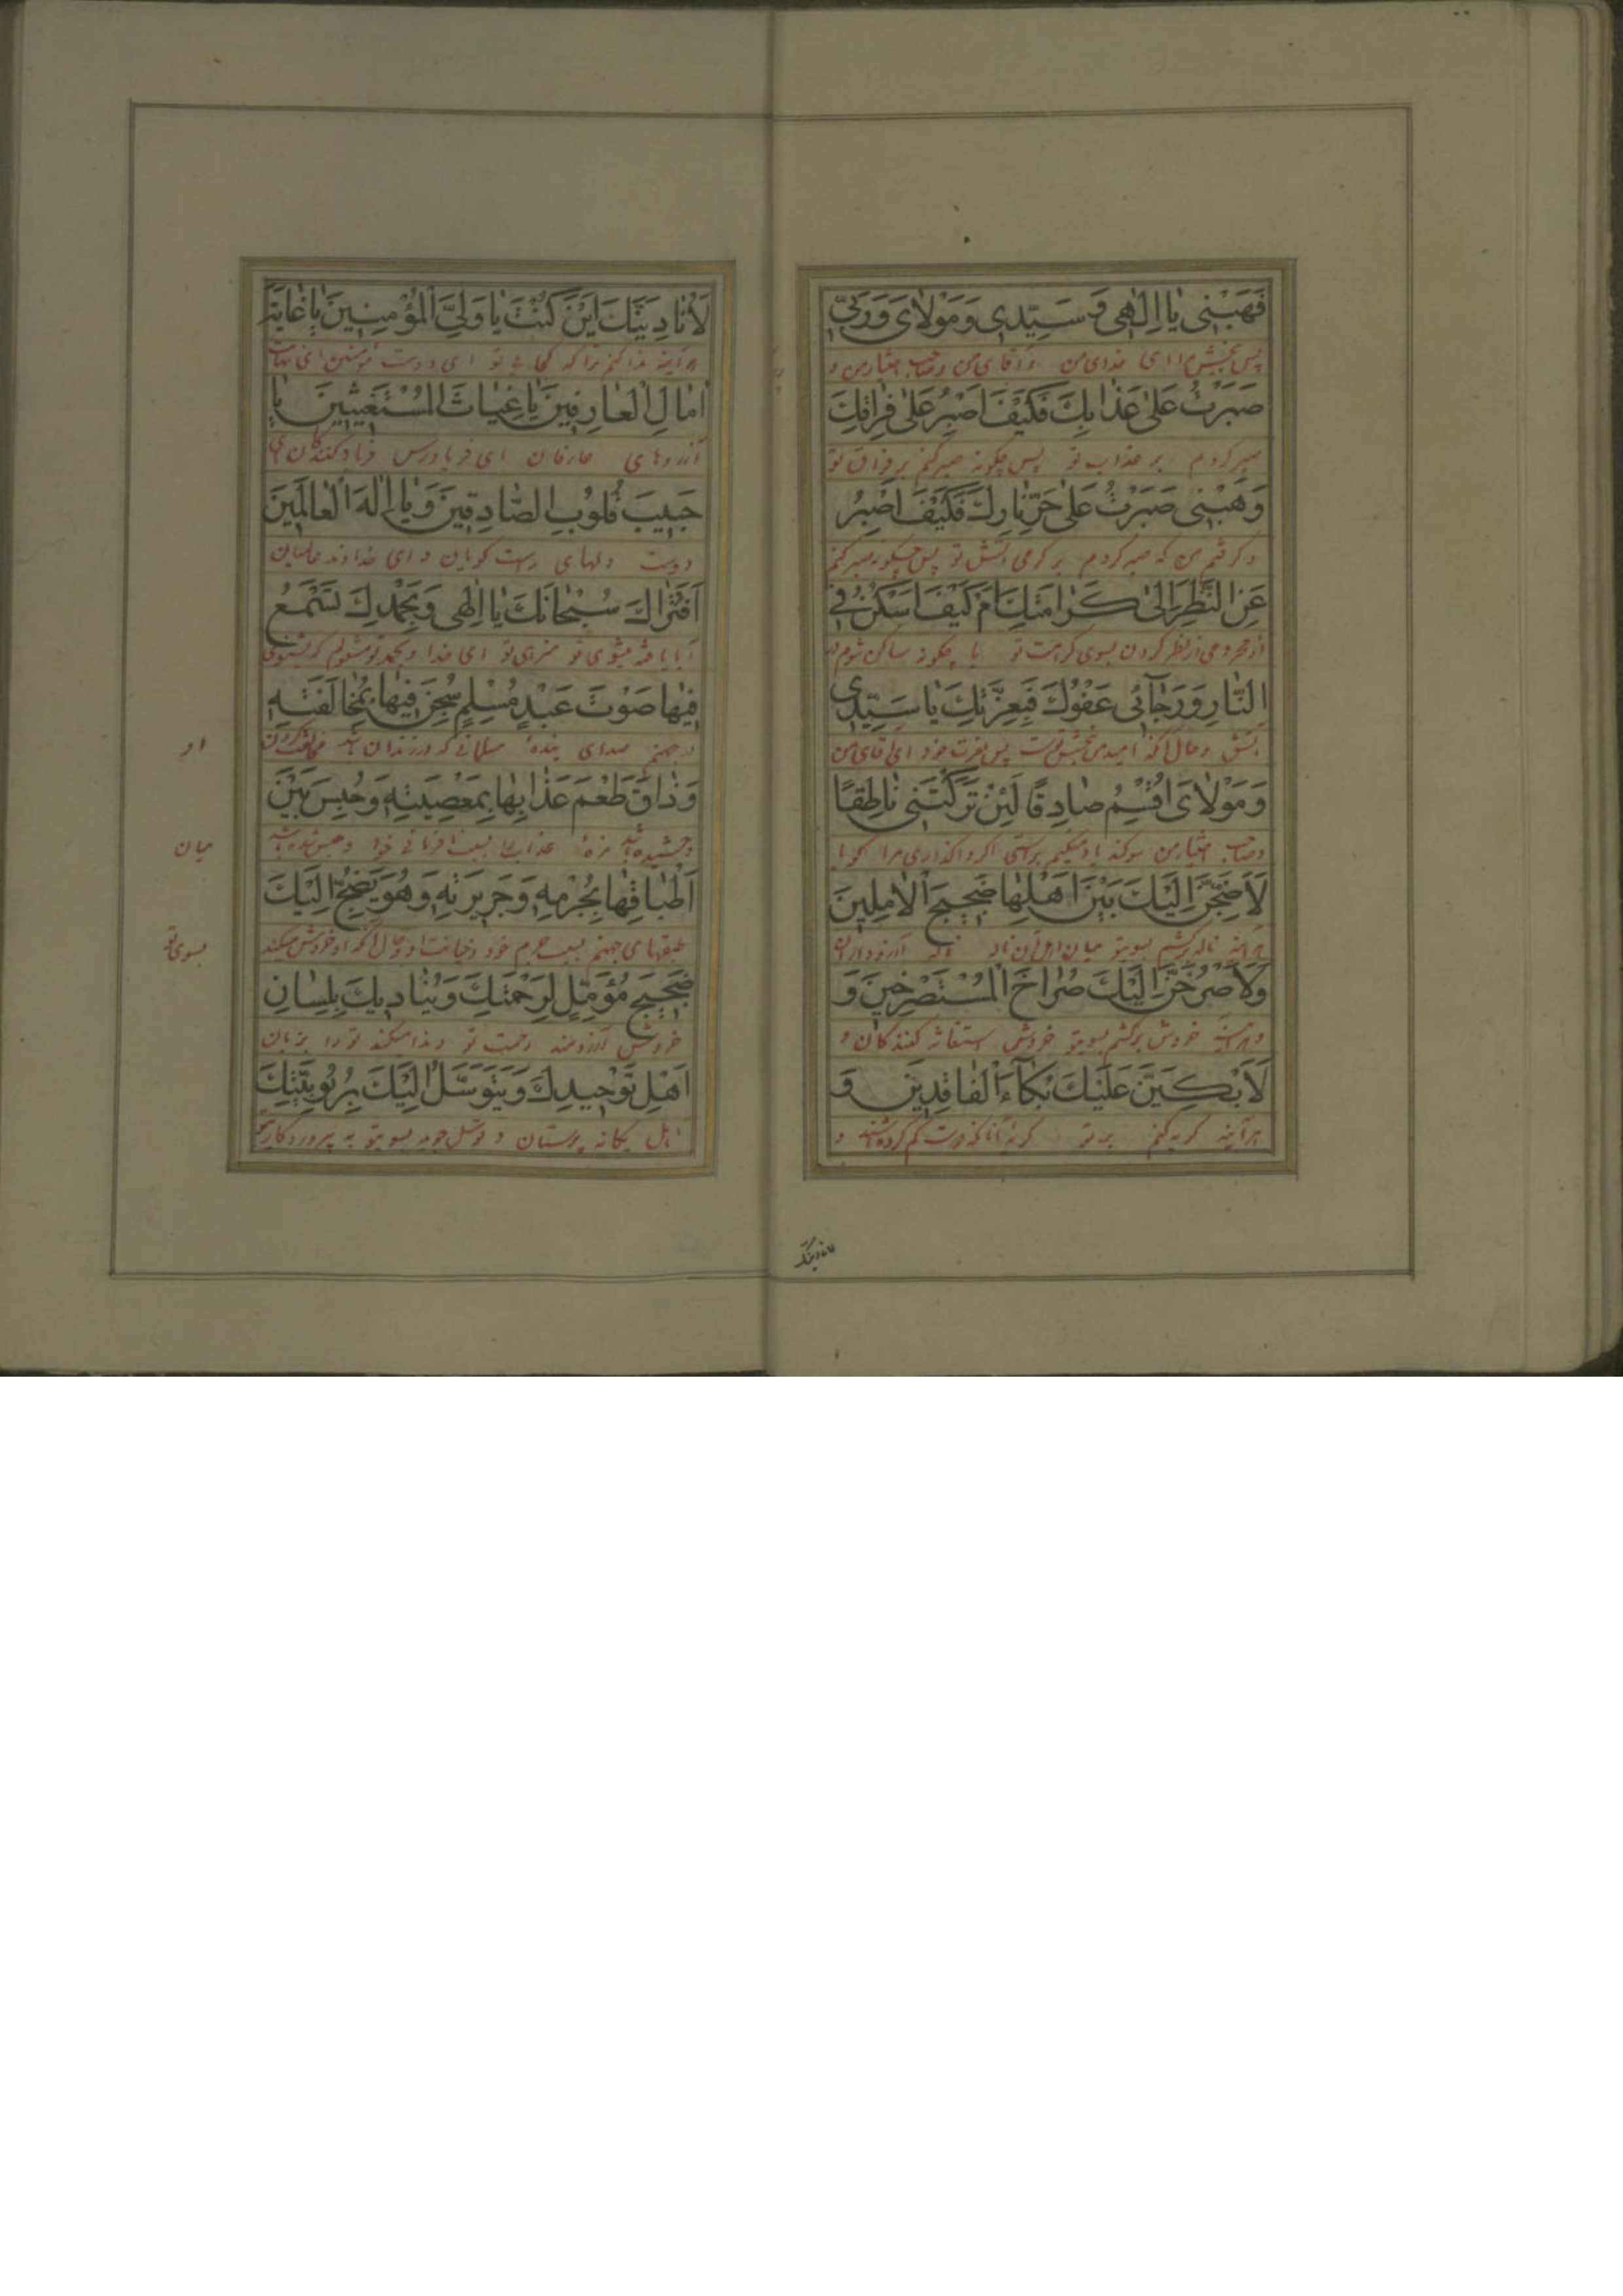 فَهَبْنِی یٰا اِلٰهِی وَ سَیِّدِی وَ مَوْلاٰیَ وَ رَبِّی
پس ببخش مرا ای خدای من و آقای من و صاحب اختیار من و
صَبَرْتُ عَلیٰ عَذٰابِكَ فَكَیْفَ اَصْبِرُ عَلیٰ فِرٰاقِكَ
صبر کردم بر عذاب تو پس چگونه صبر کنم بر فراق تو
وَ هَبْنِی صَبَرْتُ عَلیٰ حَرِّ نٰارِكَ فَكَیْفَ اَصْبِرُ
و گرفتم من که صبر کردم بر گرمی آتش تو پس چگونه صبر کنم
عَنِ النَّظَرِ اِلیٰ كَرٰامَتِكَ اَمْ كَیْفَ اَسْكُنُ فِی
از محرومی از نظر کردن بسوی کرامت تو یا چگونه ساکن شوم در
النّٰارِ وَ رَجٰآئِی عَفْوُكَ فَبِعِزَّتِكَ یٰا سَیِّدِی
آتش و حال آنکه امید من بخشش تست پس بعزت خود ای آقای من
وَ مَوْلاٰیَ اُقْسِمُ صٰادِقًا لَئِنْ تَرَكْتَنِی نٰاطِقًا
و صاحب اختیار من سوکند یاد میکنم براستی اگر واگذاری مرا گویا
لَاَضِجَّنَّ اِلَیْكَ بَیْنَ اَهْلِهٰا ضَجِیجَ الْاٰمِلِینَ
هرآینه ناله برکشم بسویتو میان اهل آن نار ناله آرزوداران
وَ لَاَصْرُخَنَّ اِلَیْكَ صُرٰاخَ الْمُسْتَصْرِخِینَ وَ
و هرآینه خروش برکشم بسویتو خروش استغاثه کنندکان و
لَاَبْكِیَنَّ عَلَیْكَ بُكٰآءَ الْفٰاقِدِینَ وَ
هرآینه گریه کنم بر تو گریه آنانکه دوست گم کرده باشند و
لَاُنٰادِیَنَّكَ اَیْنَ كُنْتَ یٰا وَلِیَّ الْمُؤْمِنِینَ یٰا غٰایَةَ
هرآینه ندا کنم ترا که کجائی تو ای دوست مؤمنین ای نهایت
اٰمٰالِ الْعٰارِفِینَ یٰا غِیٰاثَ الْمُسْتَغِیثِینَ یٰا
آرزوهای عارفان ای فریادرس فریاد کنندکان ای
حَبِیبَ قُلُوبِ الصّٰادِقِینَ وَ یٰا اِلٰهَ الْعٰالَمِینَ
دوست دلهای راست کویان و ای خداوند عالمیان
اَفَتُرٰاكَ سُبْحٰانَكَ یٰا اِلٰهِی وَ بِحَمْدِكَ تَسْمَعُ
آیا یافته میشوی تو منزهی تو ای خدا و بحمد تو مشغولم که بشنوی
فِیهٰا صَوْتَ عَبْدٍ مُسْلِمٍ سُجِنَ فِیهٰا بِمُخٰالَفَتِهِ
در جهنم صدای بندهٔ مسلمانی که در زندان باشد مخالفت کردن
او
وَ ذٰاقَ طَعْمَ عَذٰابِهٰا بِمَعْصِیَتِهِ وَ حُبِسَ بَیْنَ
و چشیده باشد مزهٔ عذابش بسبب نافرمانی خود و حبس شده باشد
میان
اَطْبٰاقِهٰا بِجُرْمِهِ وَ جَرِیرَتِهِ وَ هُوَ یَضِجُّ اِلَیْكَ
طبقهای جهنم بسبب جرم خود و خیانت او و حال آنکه او خروش میکند
بسوی تو
ضَجِیجَ مُؤَمِّلٍ لِرَحْمَتِكَ وَ یُنٰادِیكَ بِلِسٰانِ
خروش آرزومند رحمت تو و ندا میکند تو را بزبان
اَهْلِ تَوْحِیدِكَ وَ یَتَوَسَّلُ اِلَیْكَ بِرُبُوبِیَّتِكَ
اهل یگانه پرستان و توسل جوید بسویتو به پروردگاری